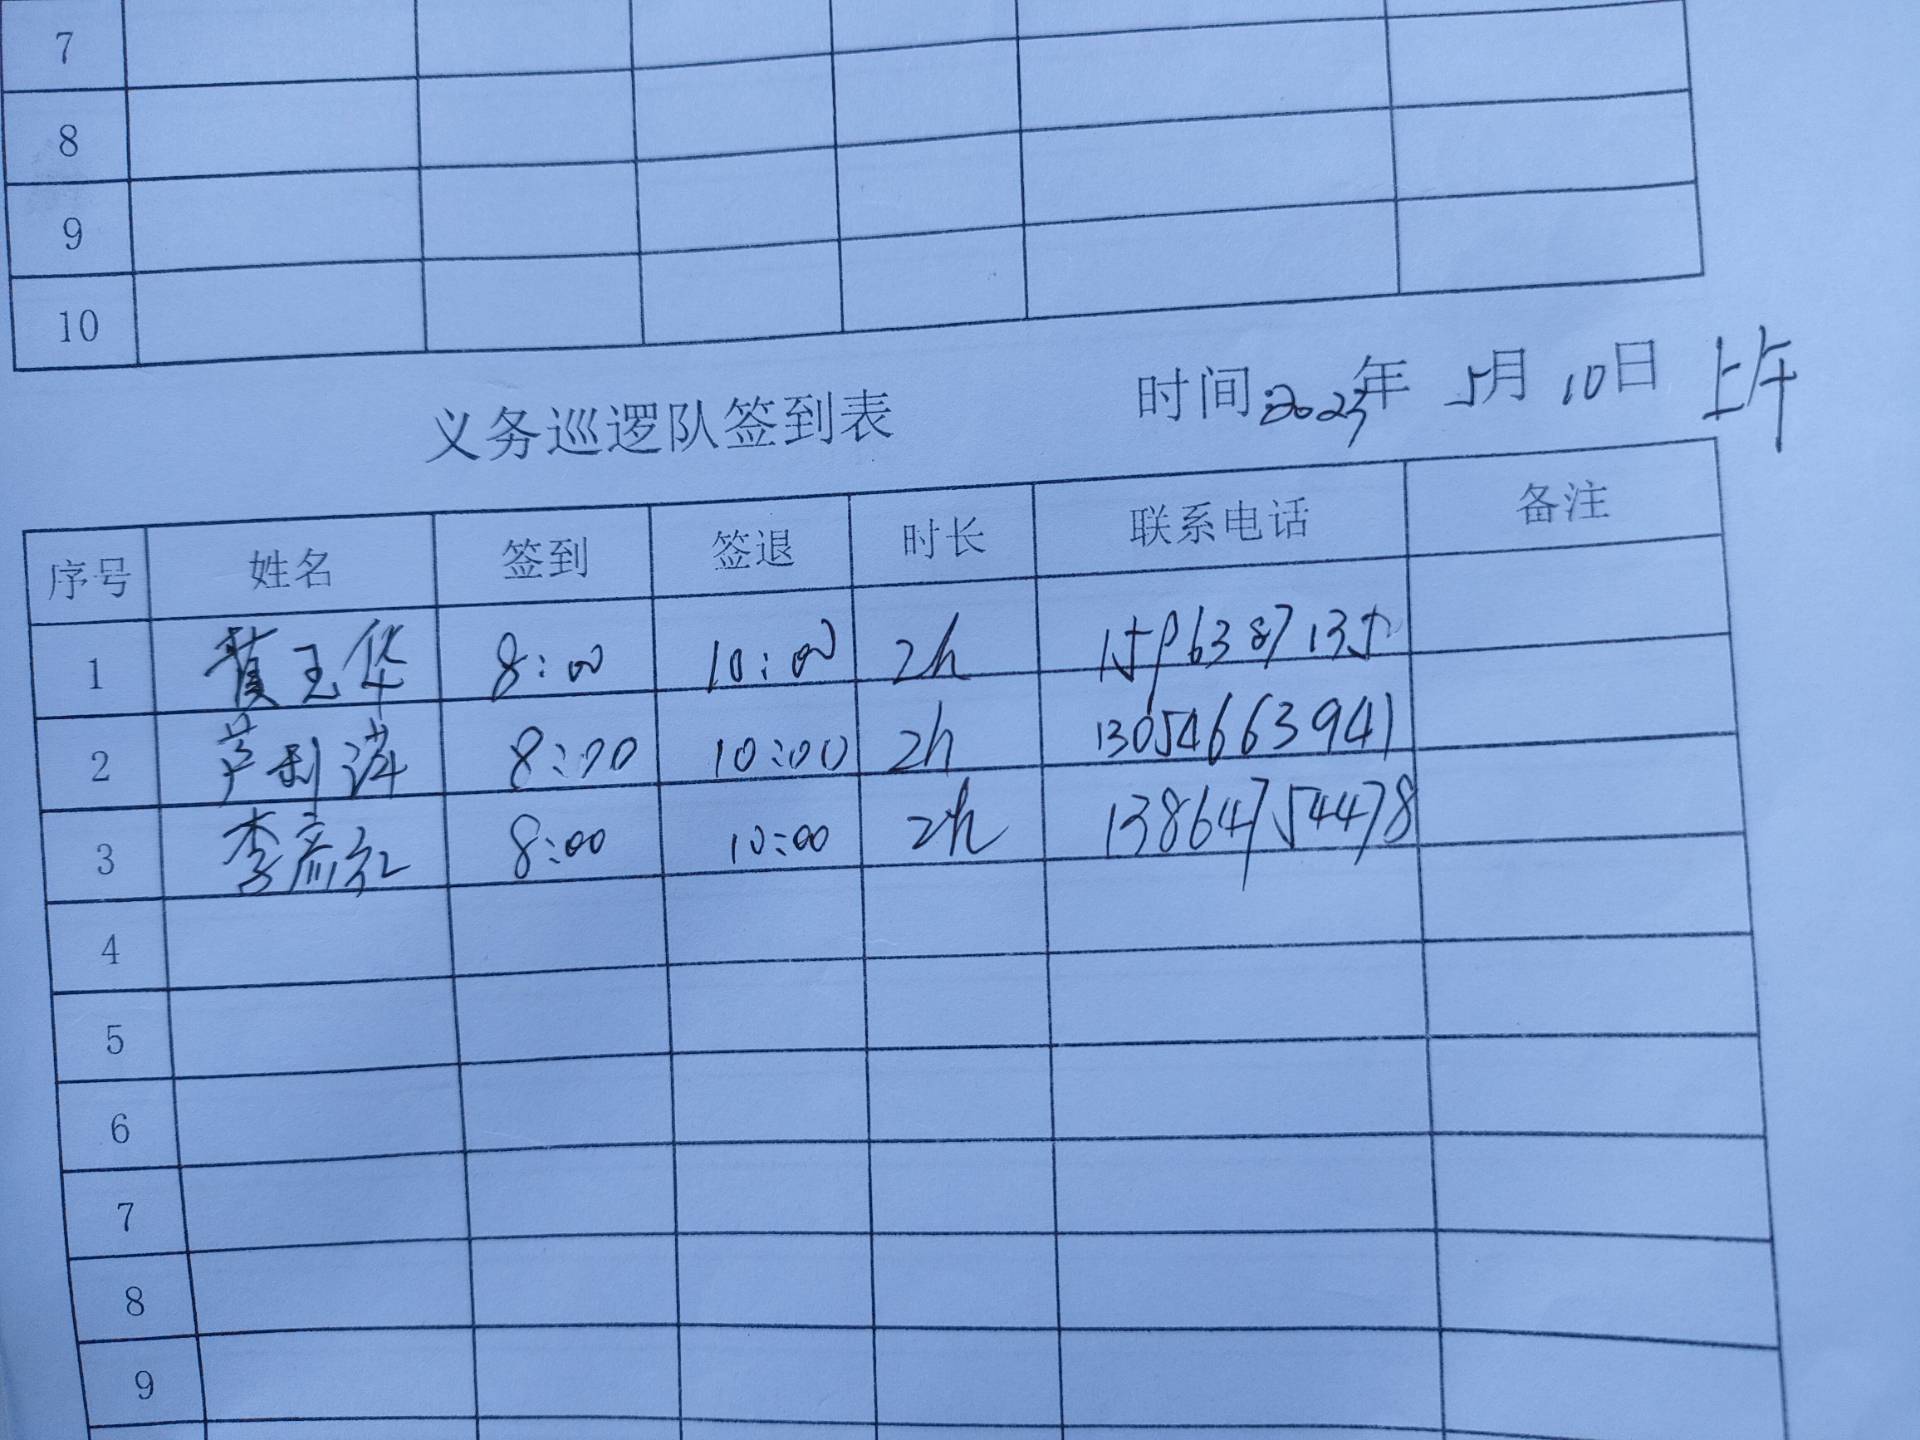 7
8
9
10
义务巡逻队签到表 时间:2023年 5月 10日 上午
序号 姓名 签到 签退 时长 联系电话 备注
1 黄玉华 8:00 10:00 2h
2 芦利涛 8:00 10:00 2h 13054663941
3 李彦红 8:00 10:00 2h 13864754478
4
5
6
7
8
9